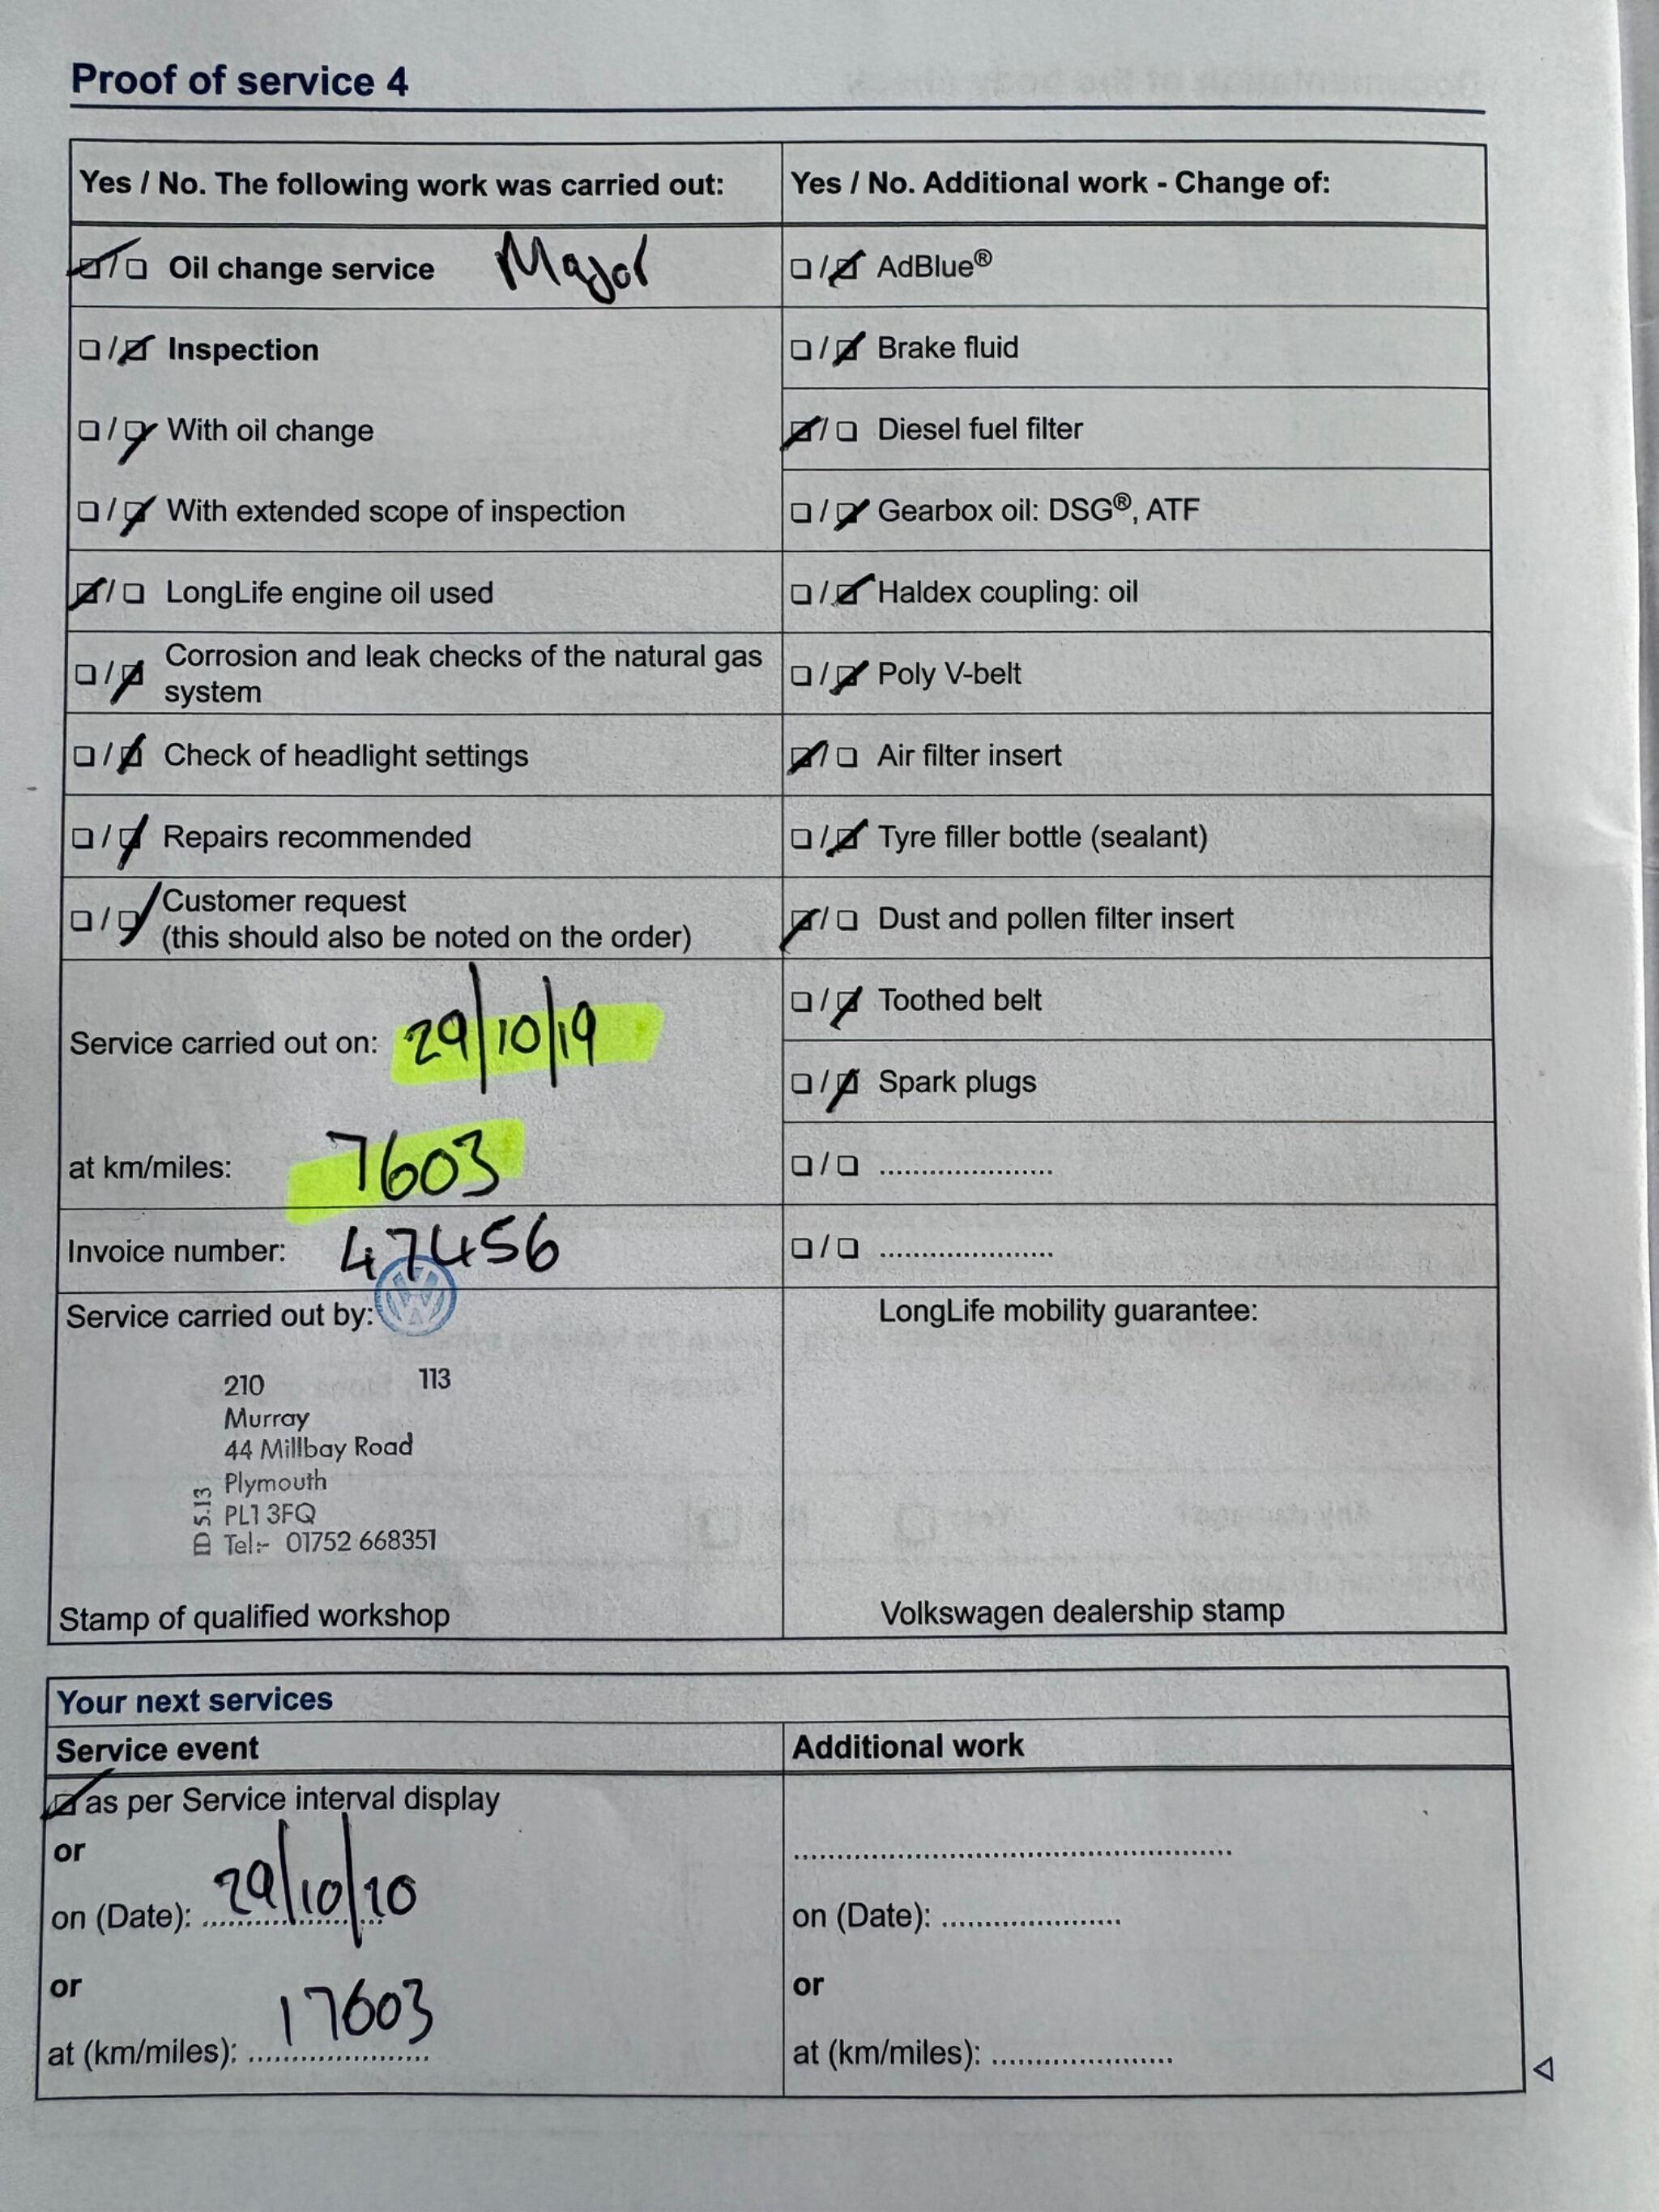 Proof of service 4
Yes / No. The following work was carried out:
Yes / No. Additional work - Change of:
Oil change service Major
/ AdBlue®
/ Inspection
/ Brake fluid
/ With oil change
/ Diesel fuel filter
/ With extended scope of inspection
/ Gearbox oil: DSG®, ATF
/ LongLife engine oil used
/ Haldex coupling: oil
/ Corrosion and leak checks of the natural gas
system
/ Poly V-belt
/ Check of headlight settings
/ Air filter insert
/ Repairs recommended
/ Tyre filler bottle (sealant)
/ Customer request
(this should also be noted on the order)
/ Dust and pollen filter insert
/ Toothed belt
Service carried out on: 29/10/19
/ Spark plugs
at km/miles: 7603
/ .....................
Invoice number: 47456
/ .....................
Service carried out by:
LongLife mobility guarantee:
VW
210 113
Murray
44 Millbay Road
Plymouth
PL1 3FQ
Tel:- 01752 668351
ID 5.13
Stamp of qualified workshop
Volkswagen dealership stamp
Your next services
Service event
Additional work
as per Service interval display
or
on (Date): 29/10/20
or
at (km/miles): 17603
on (Date): .....................
or
at (km/miles): .....................